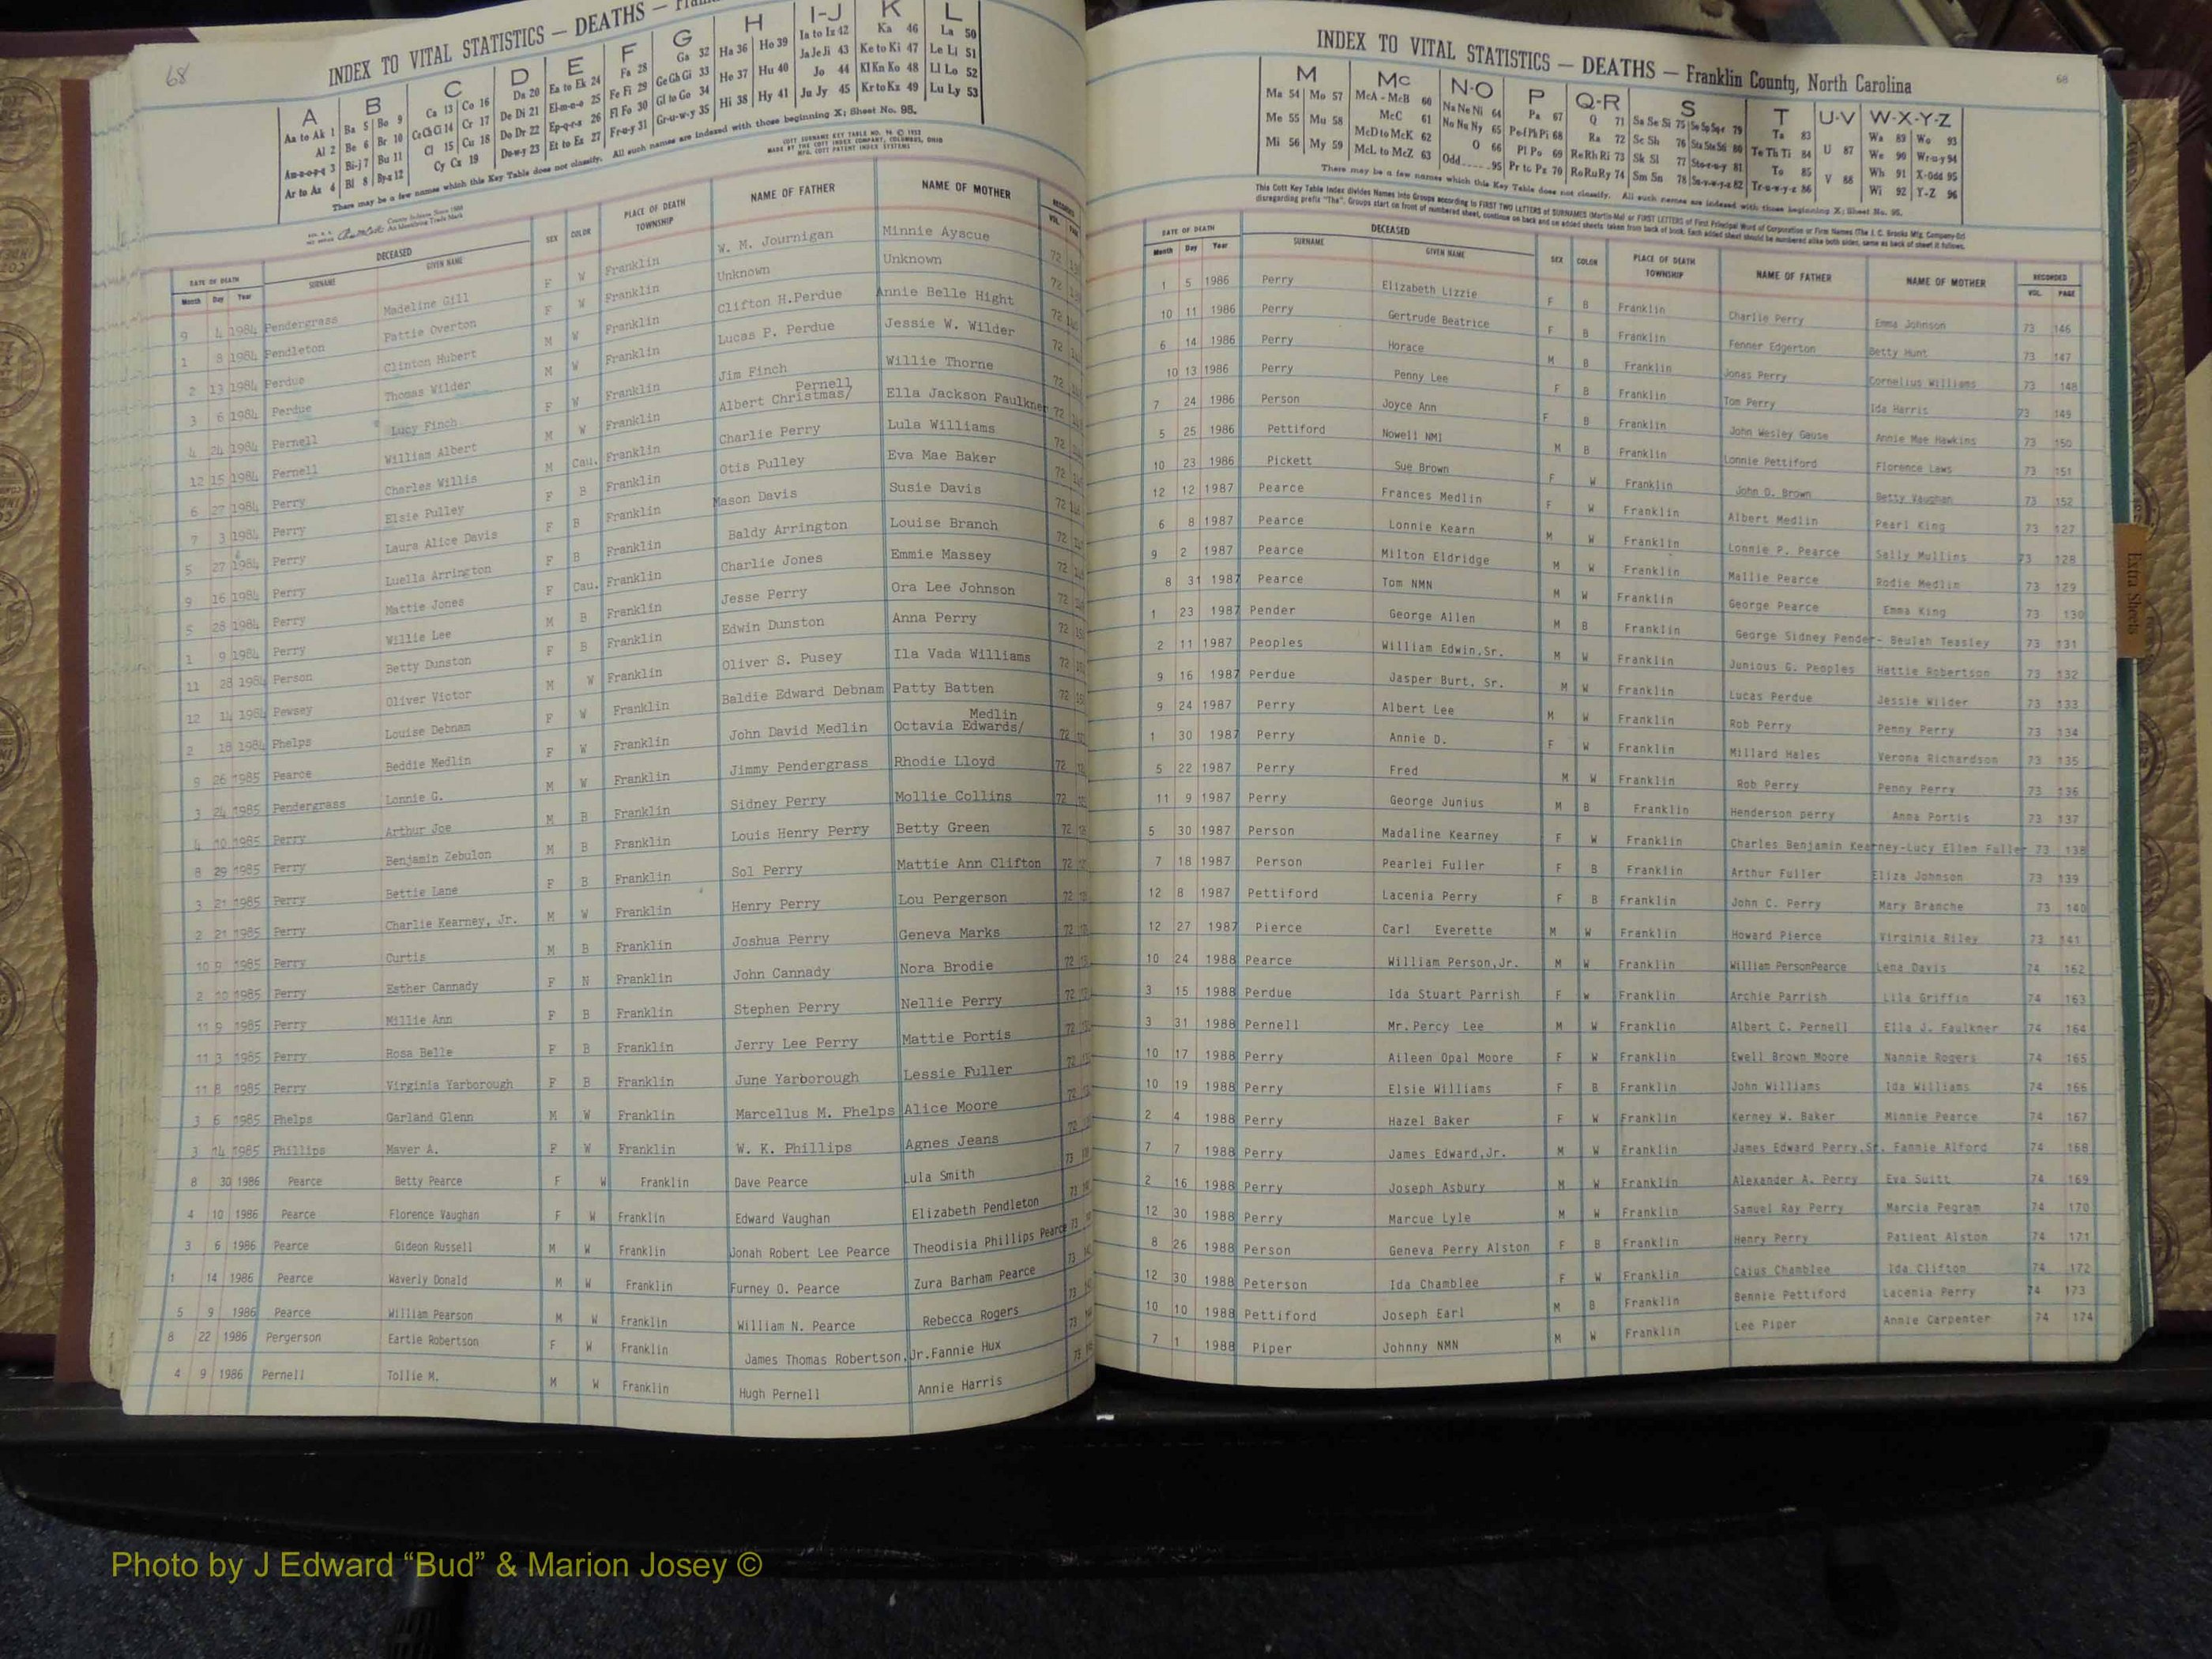 68
INDEX TO VITAL STATISTICS — DEATHS —
A B C D E F G H I-J K L
Aa to Ak 1 Ba 5 Bo 9 Ca 13 Co 16 Da 20 Ea to Ek 24 Fa 28 Ga 32 Ha 36 Ho 39 Ia to Iz 42 Ka 46 La 50
Al 2 Be 6 Br 10 Ce Ch Ci 14 Cr 17 De Di 21 El-m-n-o 25 Fe Fi 29 Ge Gh Gi 33 He 37 Hu 40 Ja Je Ji 43 Ke to Ki 47 Le Li 51
Am-n-o-p-q 3 Bi-j 7 Bu 11 Cl 15 Cu 18 Do Dr 22 Ep-q-r-s 26 Fl Fo 30 Gl to Go 34 Hi 38 Hy 41 Jo 44 Kl Kn Ko 48 Ll Lo 52
Ar to Az 4 Bl 8 By-z 12 Cy Cz 19 Du-w-y 23 Et to Ez 27 Fr-u-y 31 Gr-u-w-y 35 Ju Jy 45 Kr to Kz 49 Lu Ly 53
There may be a few names which this Key Table does not classify. All such names are indexed with those beginning X; Sheet No. 98.
DATE OF DEATH DECEASED SEX COLOR PLACE OF DEATH TOWNSHIP NAME OF FATHER NAME OF MOTHER RECORDED
Month Day Year SURNAME GIVEN NAME VOL. PAGE
9 4 1984 Pendergrass Madeline Gill F W Franklin W. M. Journigan Minnie Ayscue 72
1 8 1984 Pendleton Pattie Overton F W Franklin Unknown Unknown 72
2 13 1984 Perdue Clinton Hubert M W Franklin Clifton H.Perdue Annie Belle Hight 72
3 6 1984 Perdue Thomas Wilder M W Franklin Lucas P. Perdue Jessie W. Wilder 72
4 24 1984 Pernell Lucy Finch F W Franklin Jim Finch Willie Thorne 72
12 15 1984 Pernell William Albert M W Franklin Albert Christmas/ Pernell Ella Jackson Faulkner 72
6 27 1984 Perry Charles Willis M Cau. Franklin Charlie Perry Lula Williams 72
7 3 1984 Perry Elsie Pulley F B Franklin Otis Pulley Eva Mae Baker 72
5 27 1984 Perry Laura Alice Davis F B Franklin Mason Davis Susie Davis 72
9 16 1984 Perry Luella Arrington F B Franklin Baldy Arrington Louise Branch 72
5 28 1984 Perry Mattie Jones F Cau. Franklin Charlie Jones Emmie Massey 72
1 9 1984 Perry Willie Lee M B Franklin Jesse Perry Ora Lee Johnson 72
11 28 1984 Person Betty Dunston F B Franklin Edwin Dunston Anna Perry 72
12 14 1984 Pewsey Oliver Victor M W Franklin Oliver S. Pusey Ila Vada Williams 72
2 18 1984 Phelps Louise Debnam F W Franklin Baldie Edward Debnam Patty Batten 72
9 26 1985 Pearce Beddie Medlin F W Franklin John David Medlin Octavia Edwards/ Medlin 72
3 24 1985 Pendergrass Lonnie G. M W Franklin Jimmy Pendergrass Rhodie Lloyd 72
4 10 1985 Perry Arthur Joe M B Franklin Sidney Perry Mollie Collins 72
8 29 1985 Perry Benjamin Zebulon M B Franklin Louis Henry Perry Betty Green 72
3 21 1985 Perry Bettie Lane F B Franklin Sol Perry Mattie Ann Clifton 72
2 21 1985 Perry Charlie Kearney, Jr. M W Franklin Henry Perry Lou Pergerson 72
10 9 1985 Perry Curtis M B Franklin Joshua Perry Geneva Marks 72
2 10 1985 Perry Esther Cannady F N Franklin John Cannady Nora Brodie 72
11 9 1985 Perry Millie Ann F B Franklin Stephen Perry Nellie Perry 72
11 3 1985 Perry Rosa Belle F B Franklin Jerry Lee Perry Mattie Portis 72
11 8 1985 Perry Virginia Yarborough F B Franklin June Yarborough Lessie Fuller 72
3 6 1985 Phelps Garland Glenn M W Franklin Marcellus M. Phelps Alice Moore 72
3 14 1985 Phillips Maver A. F W Franklin W. K. Phillips Agnes Jeans 72
8 30 1986 Pearce Betty Pearce F W Franklin Dave Pearce Lula Smith 73
4 10 1986 Pearce Florence Vaughan F W Franklin Edward Vaughan Elizabeth Pendleton 73
3 6 1986 Pearce Gideon Russell M W Franklin Jonah Robert Lee Pearce Theodisia Phillips Pearce 73
1 14 1986 Pearce Waverly Donald M W Franklin Furney O. Pearce Zura Barham Pearce 73
5 9 1986 Pearce William Pearson M W Franklin William N. Pearce Rebecca Rogers 73
8 22 1986 Pergerson Eartie Robertson F W Franklin James Thomas Robertson,Jr. Fannie Hux 73
4 9 1986 Pernell Tollie M. M W Franklin Hugh Pernell Annie Harris 73
INDEX TO VITAL STATISTICS — DEATHS — Franklin County, North Carolina
68
M Mc N-O P Q-R S T U-V W-X-Y-Z
Ma 54 Mo 57 McA - McB 60 Na Ne Ni 64 Pa 67 Q 71 Sa Se Si 75 So Sp Sq-r 79 Ta 83 U 87 Wa 89 Wo 93
Me 55 Mu 58 McC 61 No Nu Ny 65 Pe-f Ph Pi 68 Ra 72 Sc Sh 76 Sta Ste Sti 80 Te Th Ti 84 V 88 We 90 Wr-u-y 94
Mi 56 My 59 McD to McK 62 O 66 Pl Po 69 Re Rh Ri 73 Sk Sl 77 Sto-r-u-y 81 To 85 Wh 91 X-Odd 95
McL to McZ 63 Odd 95 Pr to Pz 70 Ro Ru Ry 74 Sm Sn 78 Su-v-w-y-z 82 Tr-u-w-y-z 86 Wi 92 Y-Z 96
There may be a few names which this Key Table does not classify. All such names are indexed with those beginning X; Sheet No. 95.
This Cott Key Table Index divides Names into Groups according to FIRST TWO LETTERS of SURNAMES (Martin-Ma) or FIRST LETTERS of First Principal Word of Corporation or Firm Names (The J. C. Brooks Mfg. Company-Br)
disregarding prefix "The". Groups start on front of numbered sheet, continue on back and on added sheets taken from back of book. Each added sheet should be numbered alike both sides, same as back of sheet it follows.
DATE OF DEATH DECEASED SEX COLOR PLACE OF DEATH TOWNSHIP NAME OF FATHER NAME OF MOTHER RECORDED
Month Day Year SURNAME GIVEN NAME VOL. PAGE
1 5 1986 Perry Elizabeth Lizzie F B Franklin Charlie Perry Emma Johnson 73 146
10 11 1986 Perry Gertrude Beatrice F B Franklin Fenner Edgerton Betty Hunt 73 147
6 14 1986 Perry Horace M B Franklin Jonas Perry Cornelius Williams 73 148
10 13 1986 Perry Penny Lee F B Franklin Tom Perry Ida Harris 73 149
7 24 1986 Person Joyce Ann F B Franklin John Wesley Gause Annie Mae Hawkins 73 150
5 25 1986 Pettiford Nowell NMI M B Franklin Lonnie Pettiford Florence Laws 73 151
10 23 1986 Pickett Sue Brown F W Franklin John D. Brown Betty Vaughan 73 152
12 12 1987 Pearce Frances Medlin F W Franklin Albert Medlin Pearl King 73 127
6 8 1987 Pearce Lonnie Kearn M W Franklin Lonnie P. Pearce Sally Mullins 73 128
9 2 1987 Pearce Milton Eldridge M W Franklin Mallie Pearce Rodie Medlin 73 129
8 31 1987 Pearce Tom NMN M W Franklin George Pearce Emma King 73 130
1 23 1987 Pender George Allen M B Franklin George Sidney Pender- Beulah Teasley 73 131
2 11 1987 Peoples William Edwin,Sr. M W Franklin Junious G. Peoples Hattie Robertson 73 132
9 16 1987 Perdue Jasper Burt, Sr. M W Franklin Lucas Perdue Jessie Wilder 73 133
9 24 1987 Perry Albert Lee M W Franklin Rob Perry Penny Perry 73 134
1 30 1987 Perry Annie D. F W Franklin Millard Hales Verona Richardson 73 135
5 22 1987 Perry Fred M W Franklin Rob Perry Penny Perry 73 136
11 9 1987 Perry George Junius M B Franklin Henderson perry Anna Portis 73 137
5 30 1987 Person Madaline Kearney F W Franklin Charles Benjamin Kearney-Lucy Ellen Fuller 73 138
7 18 1987 Person Pearlei Fuller F B Franklin Arthur Fuller Eliza Johnson 73 139
12 8 1987 Pettiford Lacenia Perry F B Franklin John C. Perry Mary Branche 73 140
12 27 1987 Pierce Carl Everette M W Franklin Howard Pierce Virginia Riley 73 141
10 24 1988 Pearce William Person,Jr. M W Franklin William PersonPearce Lena Davis 74 162
3 15 1988 Perdue Ida Stuart Parrish F w Franklin Archie Parrish Lila Griffin 74 163
3 31 1988 Pernell Mr.Percy Lee M W Franklin Albert C. Pernell Ella J. Faulkner 74 164
10 17 1988 Perry Aileen Opal Moore F W Franklin Ewell Brown Moore Nannie Rogers 74 165
10 19 1988 Perry Elsie Williams F B Franklin John Williams Ida Williams 74 166
2 4 1988 Perry Hazel Baker F W Franklin Kerney W. Baker Minnie Pearce 74 167
7 7 1988 Perry James Edward,Jr. M W Franklin James Edward Perry,Sr. Fannie Alford 74 168
2 16 1988 Perry Joseph Asbury M W Franklin Alexander A. Perry Eva Suitt 74 169
12 30 1988 Perry Marcue Lyle M W Franklin Samuel Ray Perry Marcia Pegram 74 170
8 26 1988 Person Geneva Perry Alston F B Franklin Henry Perry Patient Alston 74 171
12 30 1988 Peterson Ida Chamblee F W Franklin Caius Chamblee Ida Clifton 74 172
10 10 1988 Pettiford Joseph Earl M B Franklin Bennie Pettiford Lacenia Perry 74 173
7 1 1988 Piper Johnny NMN M W Franklin Lee Piper Annie Carpenter 74 174
Extra Sheets
Photo by J Edward “Bud” & Marion Josey ©